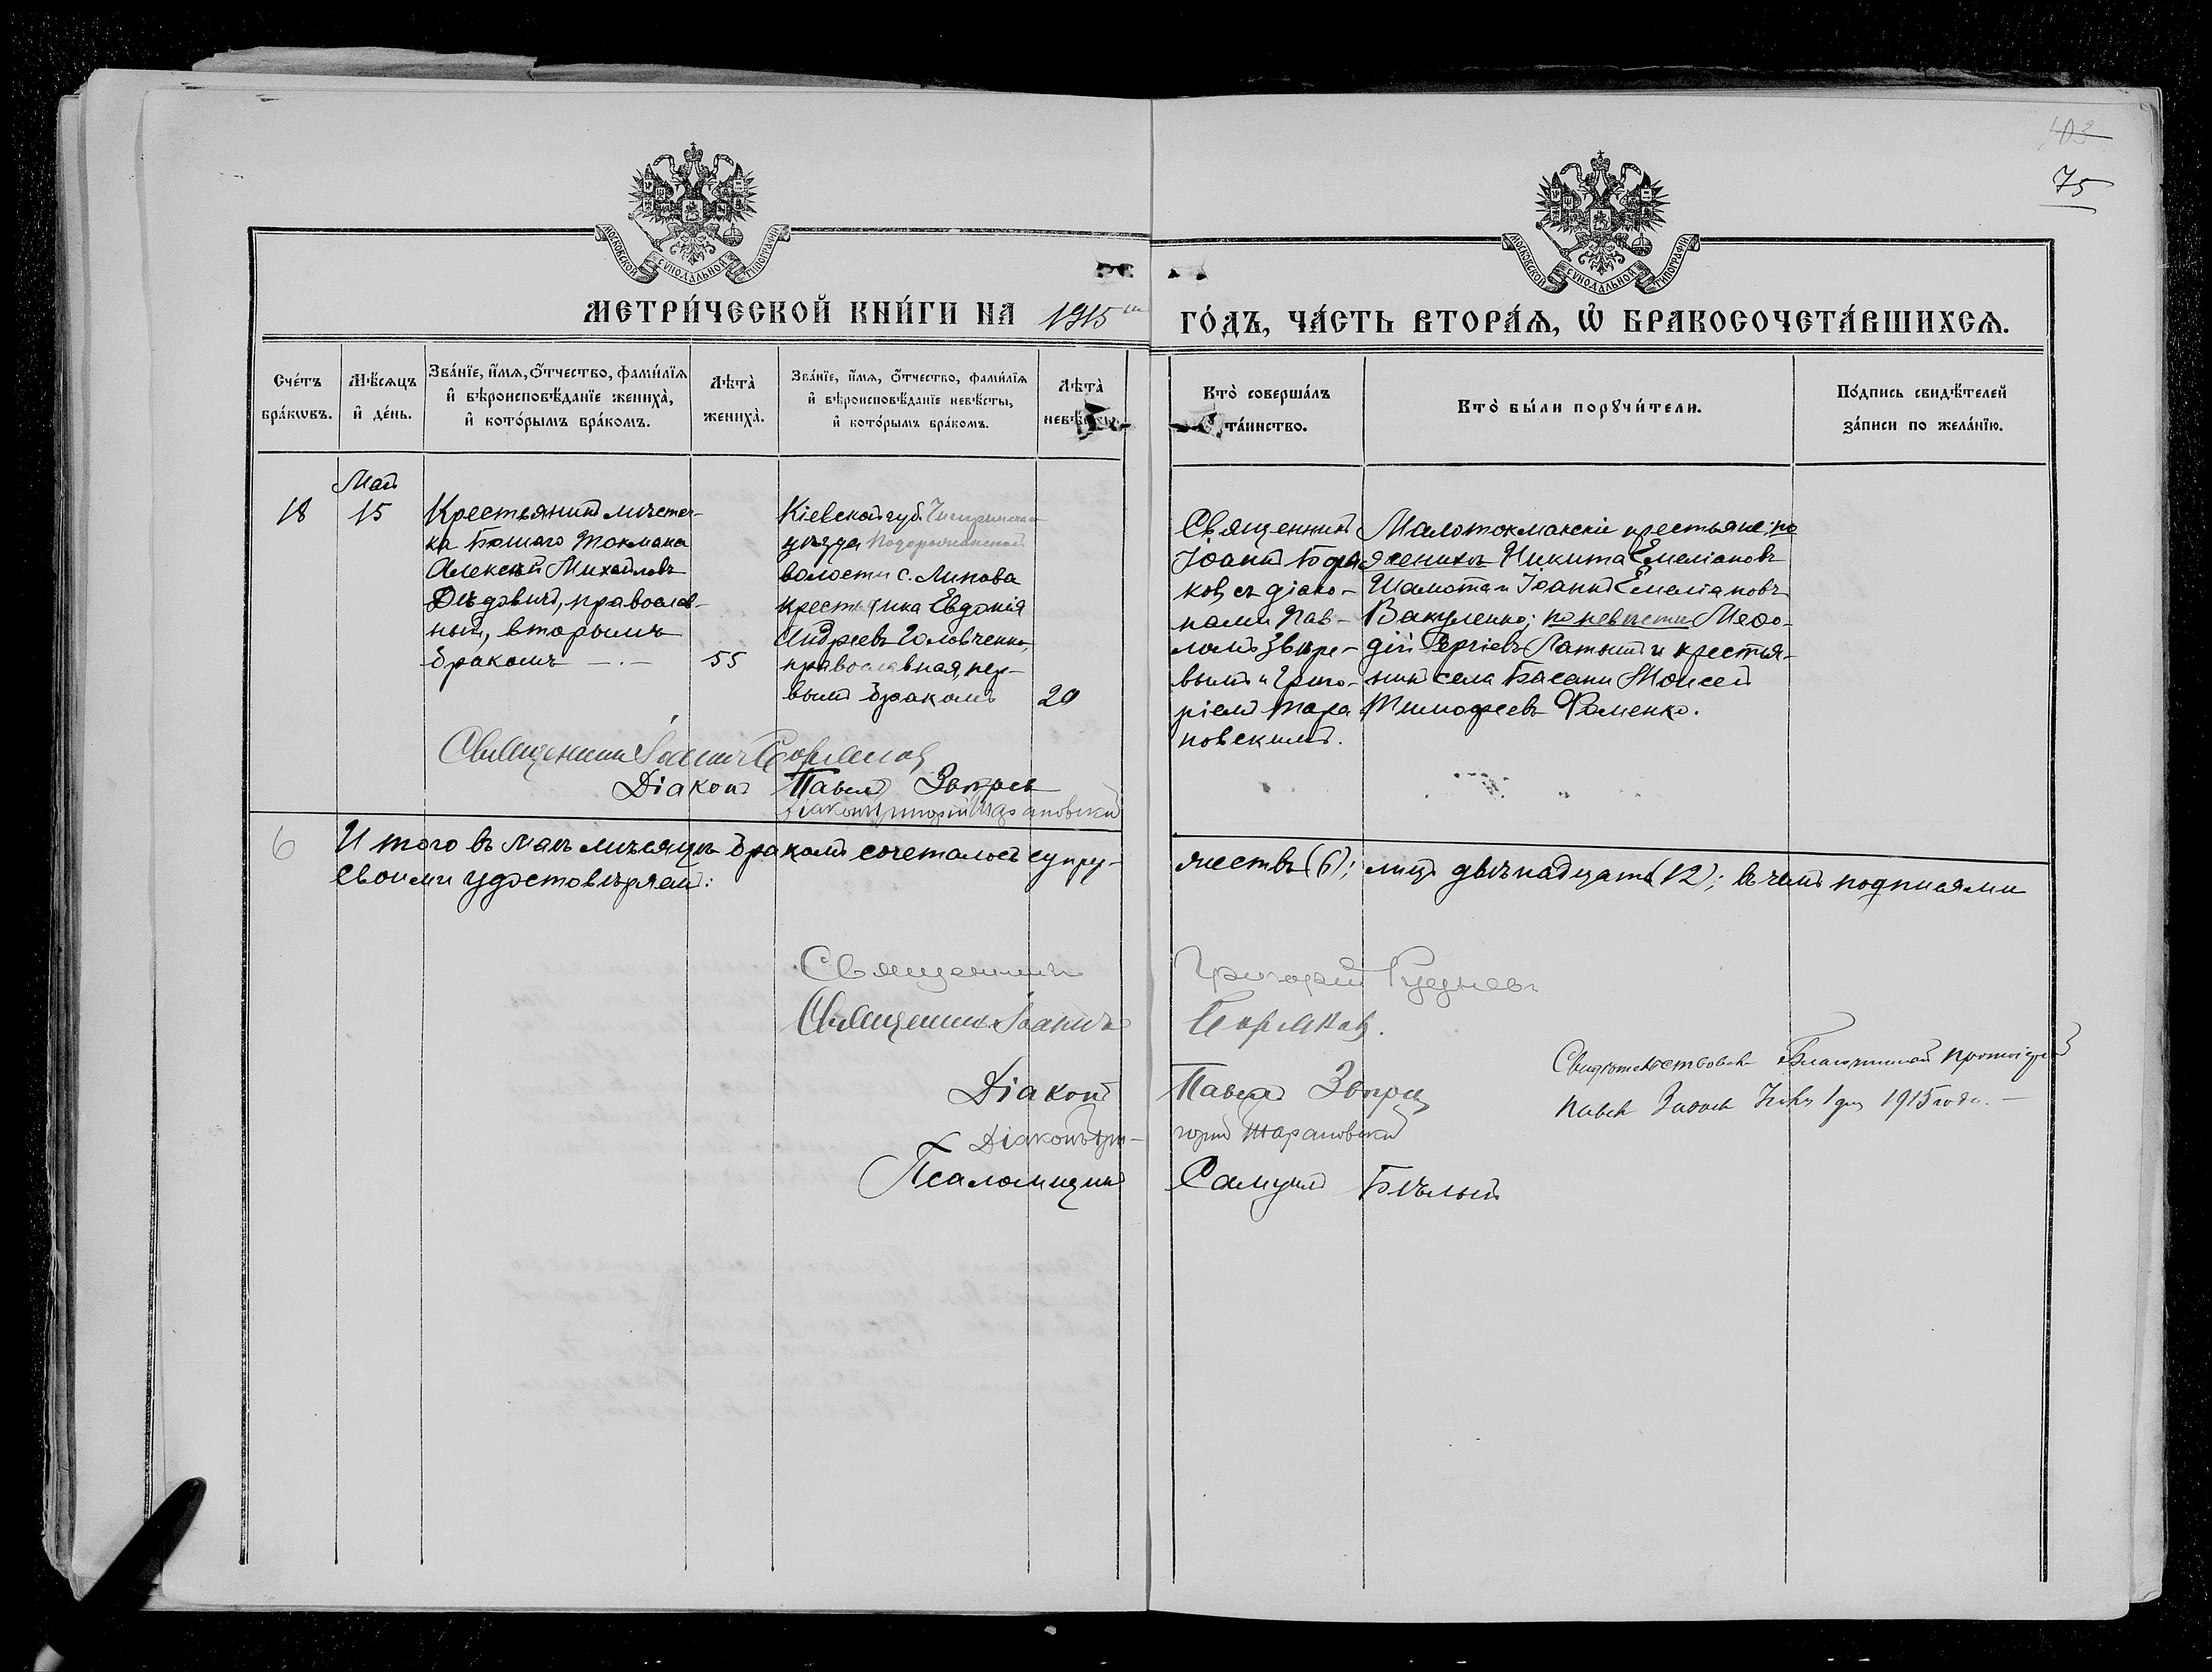 103
75
МОСКОВСКОЙ СѴНОДАЛЬНОЙ ТИПОГРАФІИ
МОСКОВСКОЙ СѴНОДАЛЬНОЙ ТИПОГРАФІИ
МЕТРИ́ЧЕСКОЙ КНИ́ГИ НА 1915
ГО́ДЪ, ЧА́СТЬ ВТОРА́Ѧ, Ѡ҆ БРАКОСОЧЕТА́ВШИХСѦ.
Счéтъ бра́кωвъ.
Мѣ́сяцъ и҆ де́нь.
Зва́нїе, и҆́мѧ, ѻ҆́тчество, фами́лїѧ
и҆ вѣроисповѣ́данїе жениха̀,
и҆ кото́рымъ бра́комъ.
Лѣта̀ жениха̀.
Зва́нїе, и҆́мѧ, ѻ҆́тчество, фами́лїѧ
и҆ вѣроисповѣ́данїе невѣ́сты,
и҆ кото́рымъ бра́комъ.
Лѣта̀ невѣ́сты.
Кто̀ соверша́лъ
та́инство.
Кто̀ бы́ли порꙋчи́тели.
По́дпись свидѣ́телей
за́писи по жела́нїю.
18
Май
15
Крестьянинъ мѣстеч-
ка Большого Токмака
Алексѣй Михайловъ
Дѣдовичъ, православ-
ный, вторымъ
бракомъ
55
Кіевской губ. Чигиринскаго
уѣзда
волости с. Липова
крестьянка Евдокія
Андреевъ Головченко,
православная, пер-
вымъ бракомъ
20
Священникъ
Іоаннъ Боря-
ковъ съ діако-
нами Пав-
ломъ Звѣре-
вымъ и Григо-
ріемъ Тара
новскимъ.
Малотокмакскіе крестьяне: по
женихѣ Никита Емеліановъ
Шамота и Іоаннъ Емеліановъ
Вакуленко; по невѣстѣ Меѳо-
дій Сергіевъ Латышъ и крестья-
нинъ села Басани Моисей
Тимоѳеевъ Фоменко.
Священникъ Іоаннъ
Діаконъ Павелъ Звѣревъ
Діаконъ Григорій Тарановскій
6
И того въ маѣ мѣсяцѣ бракомъ сочеталось супру-
жествъ (6); лицъ двѣнадцать (12); въ чемъ подписями
своими удостовѣряемъ:
Священникъ Григорій Рудневъ
Священникъ Іоаннъ
Діаконъ Павелъ Звѣревъ
Діаконъ Григорій Тарановскій
Псаломщикъ Самуилъ Бѣлый
Свидѣтельствовалъ Благочинный протоіерей
Павелъ 1 дня 1915 года.